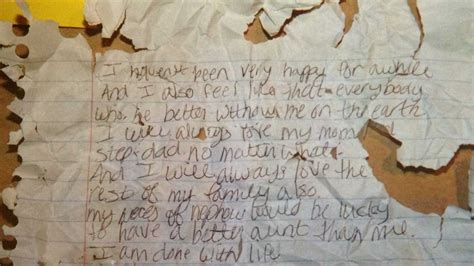 I havent been very happy for awhile
And I also feel like that everybody
who be better without me on the earth
I will always love my mom and
step-dad no matter what
And I will always love the
rest of my family also
my nieces of nephew would be lucky
to have a better aunt than me.
I am done with life